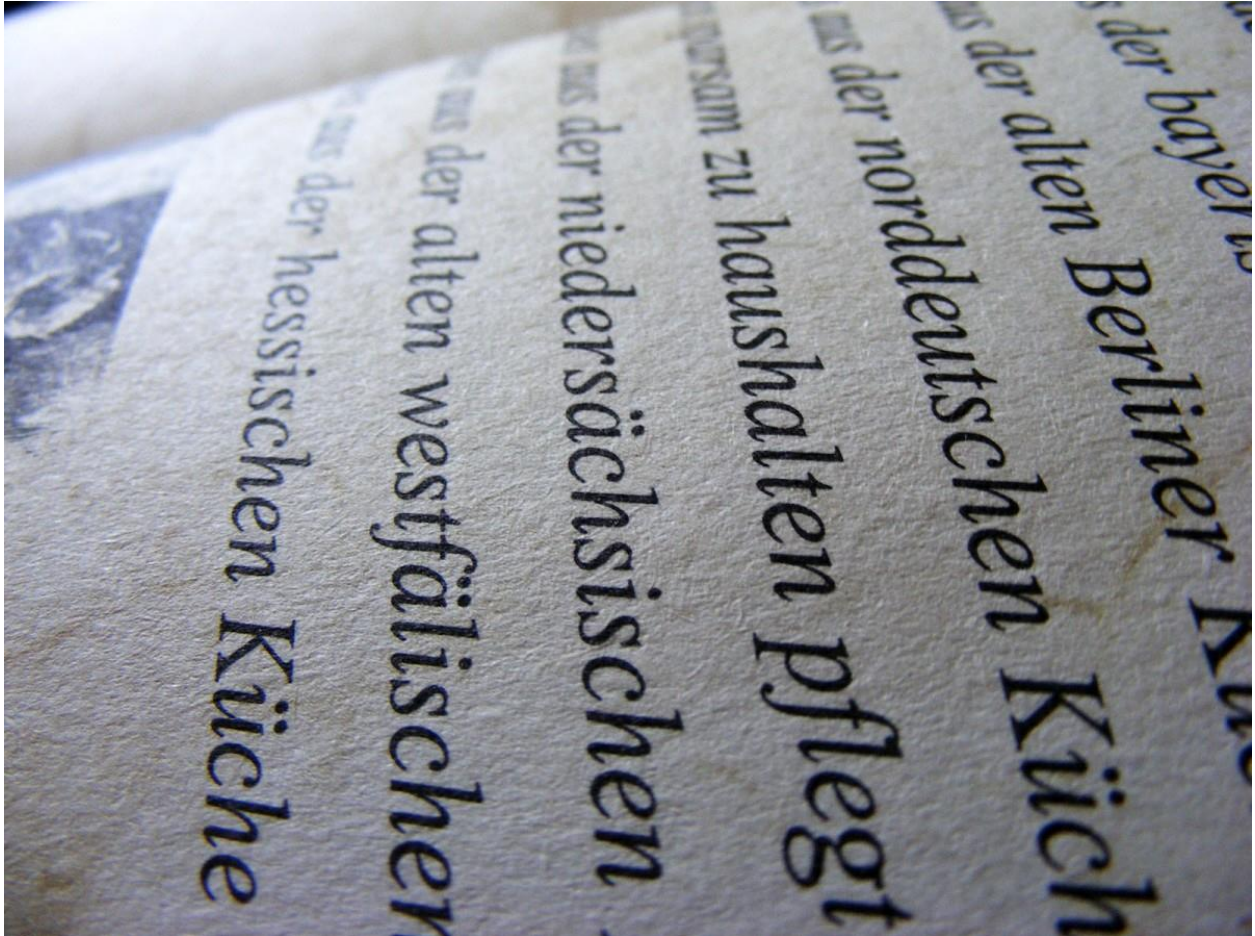 der bayeris
aus der alten Berliner
aus der norddeutschen Küch
sparsam zu haushalten pflegt
aus der niedersächsischen
aus der alten westfälischen
aus der hessischen Küche